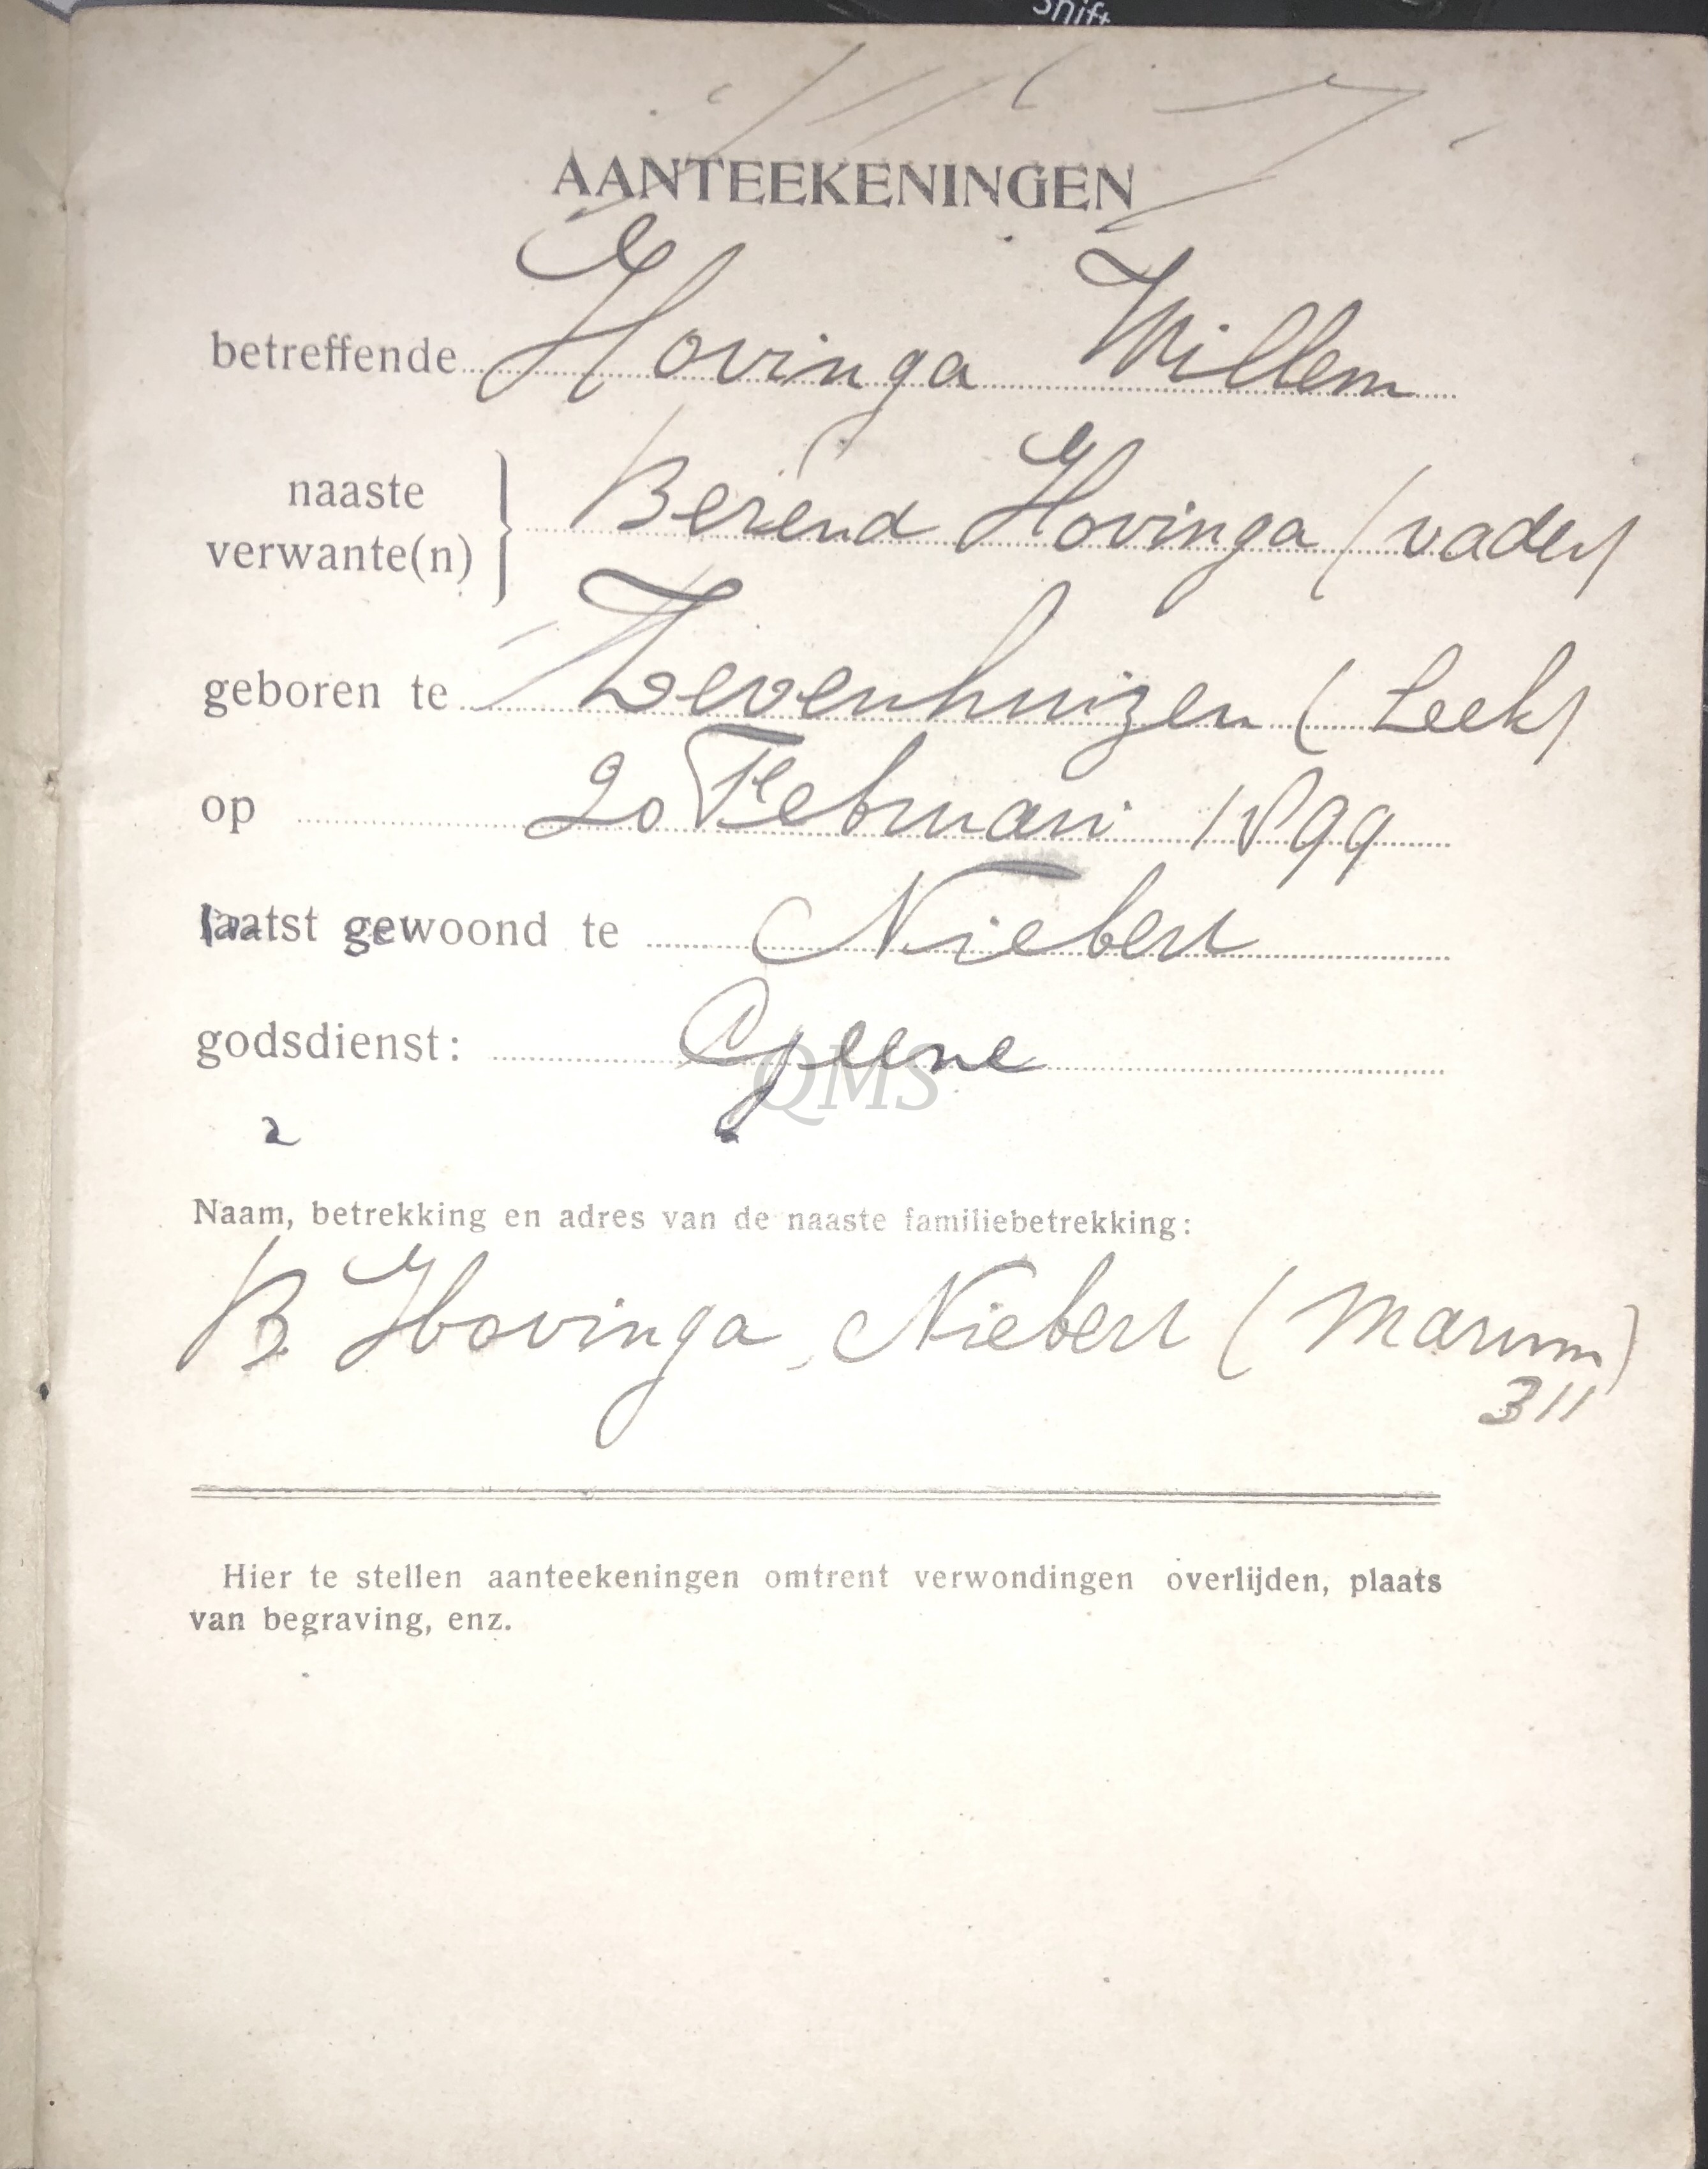 Shift
AANTEEKENINGEN
betreffende Hovinga Willem
naaste verwante(n) } Berend Hovinga (vader)
geboren te Zevenhuizen (Leek)
op 20 Februari 1899
laatst gewoond te Niebert
godsdienst: Geene
QMS
2
Naam, betrekking en adres van de naaste familiebetrekking:
B. Hovinga, Niebert (Marum)
311
Hier te stellen aanteekeningen omtrent verwondingen overlijden, plaats
van begraving, enz.